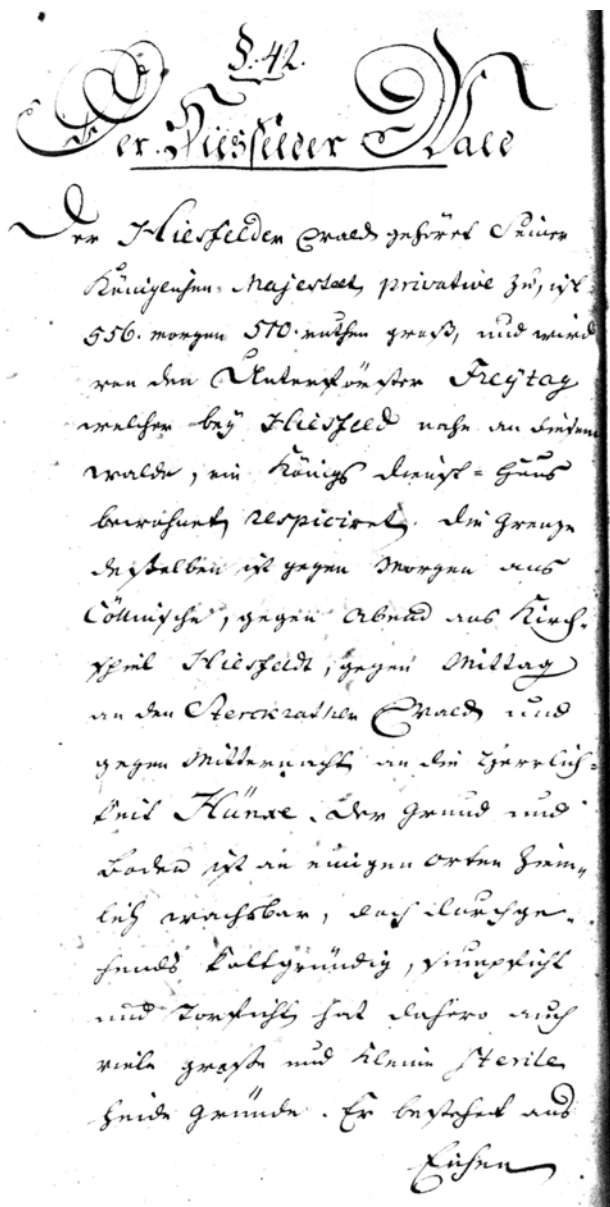 §. 42.
Der Hiesfelder Wald
Der Hiesfelder Wald gehöret Seiner
Königlichen Majestaet privative zu, ist
556. morgen 570. ruthen groß, und wird
von den Unterförster Freÿtag
welcher beÿ Hiesfeld nahe an diesem
walde, ein Königs dienst=Haus
bewohnet, respiciret. die Grenze
desselben ist gegen Morgen ans
Cöllnische, gegen Abend ans Kirch=
spiel Hiesfeldt, gegen Mittag
an den Sterckrather Wald und
gegen Mitternacht an die Herrlich=
keit Hünxe. Der Grund und
Boden ist an einigen orten ziem=
lich wachsbar, doch durchge=
hends kaltgründig, sumpficht
und Torficht, hat dahero auch
viele große und kleine sterile
Heide Gründe. Er bestehet aus
Eichen